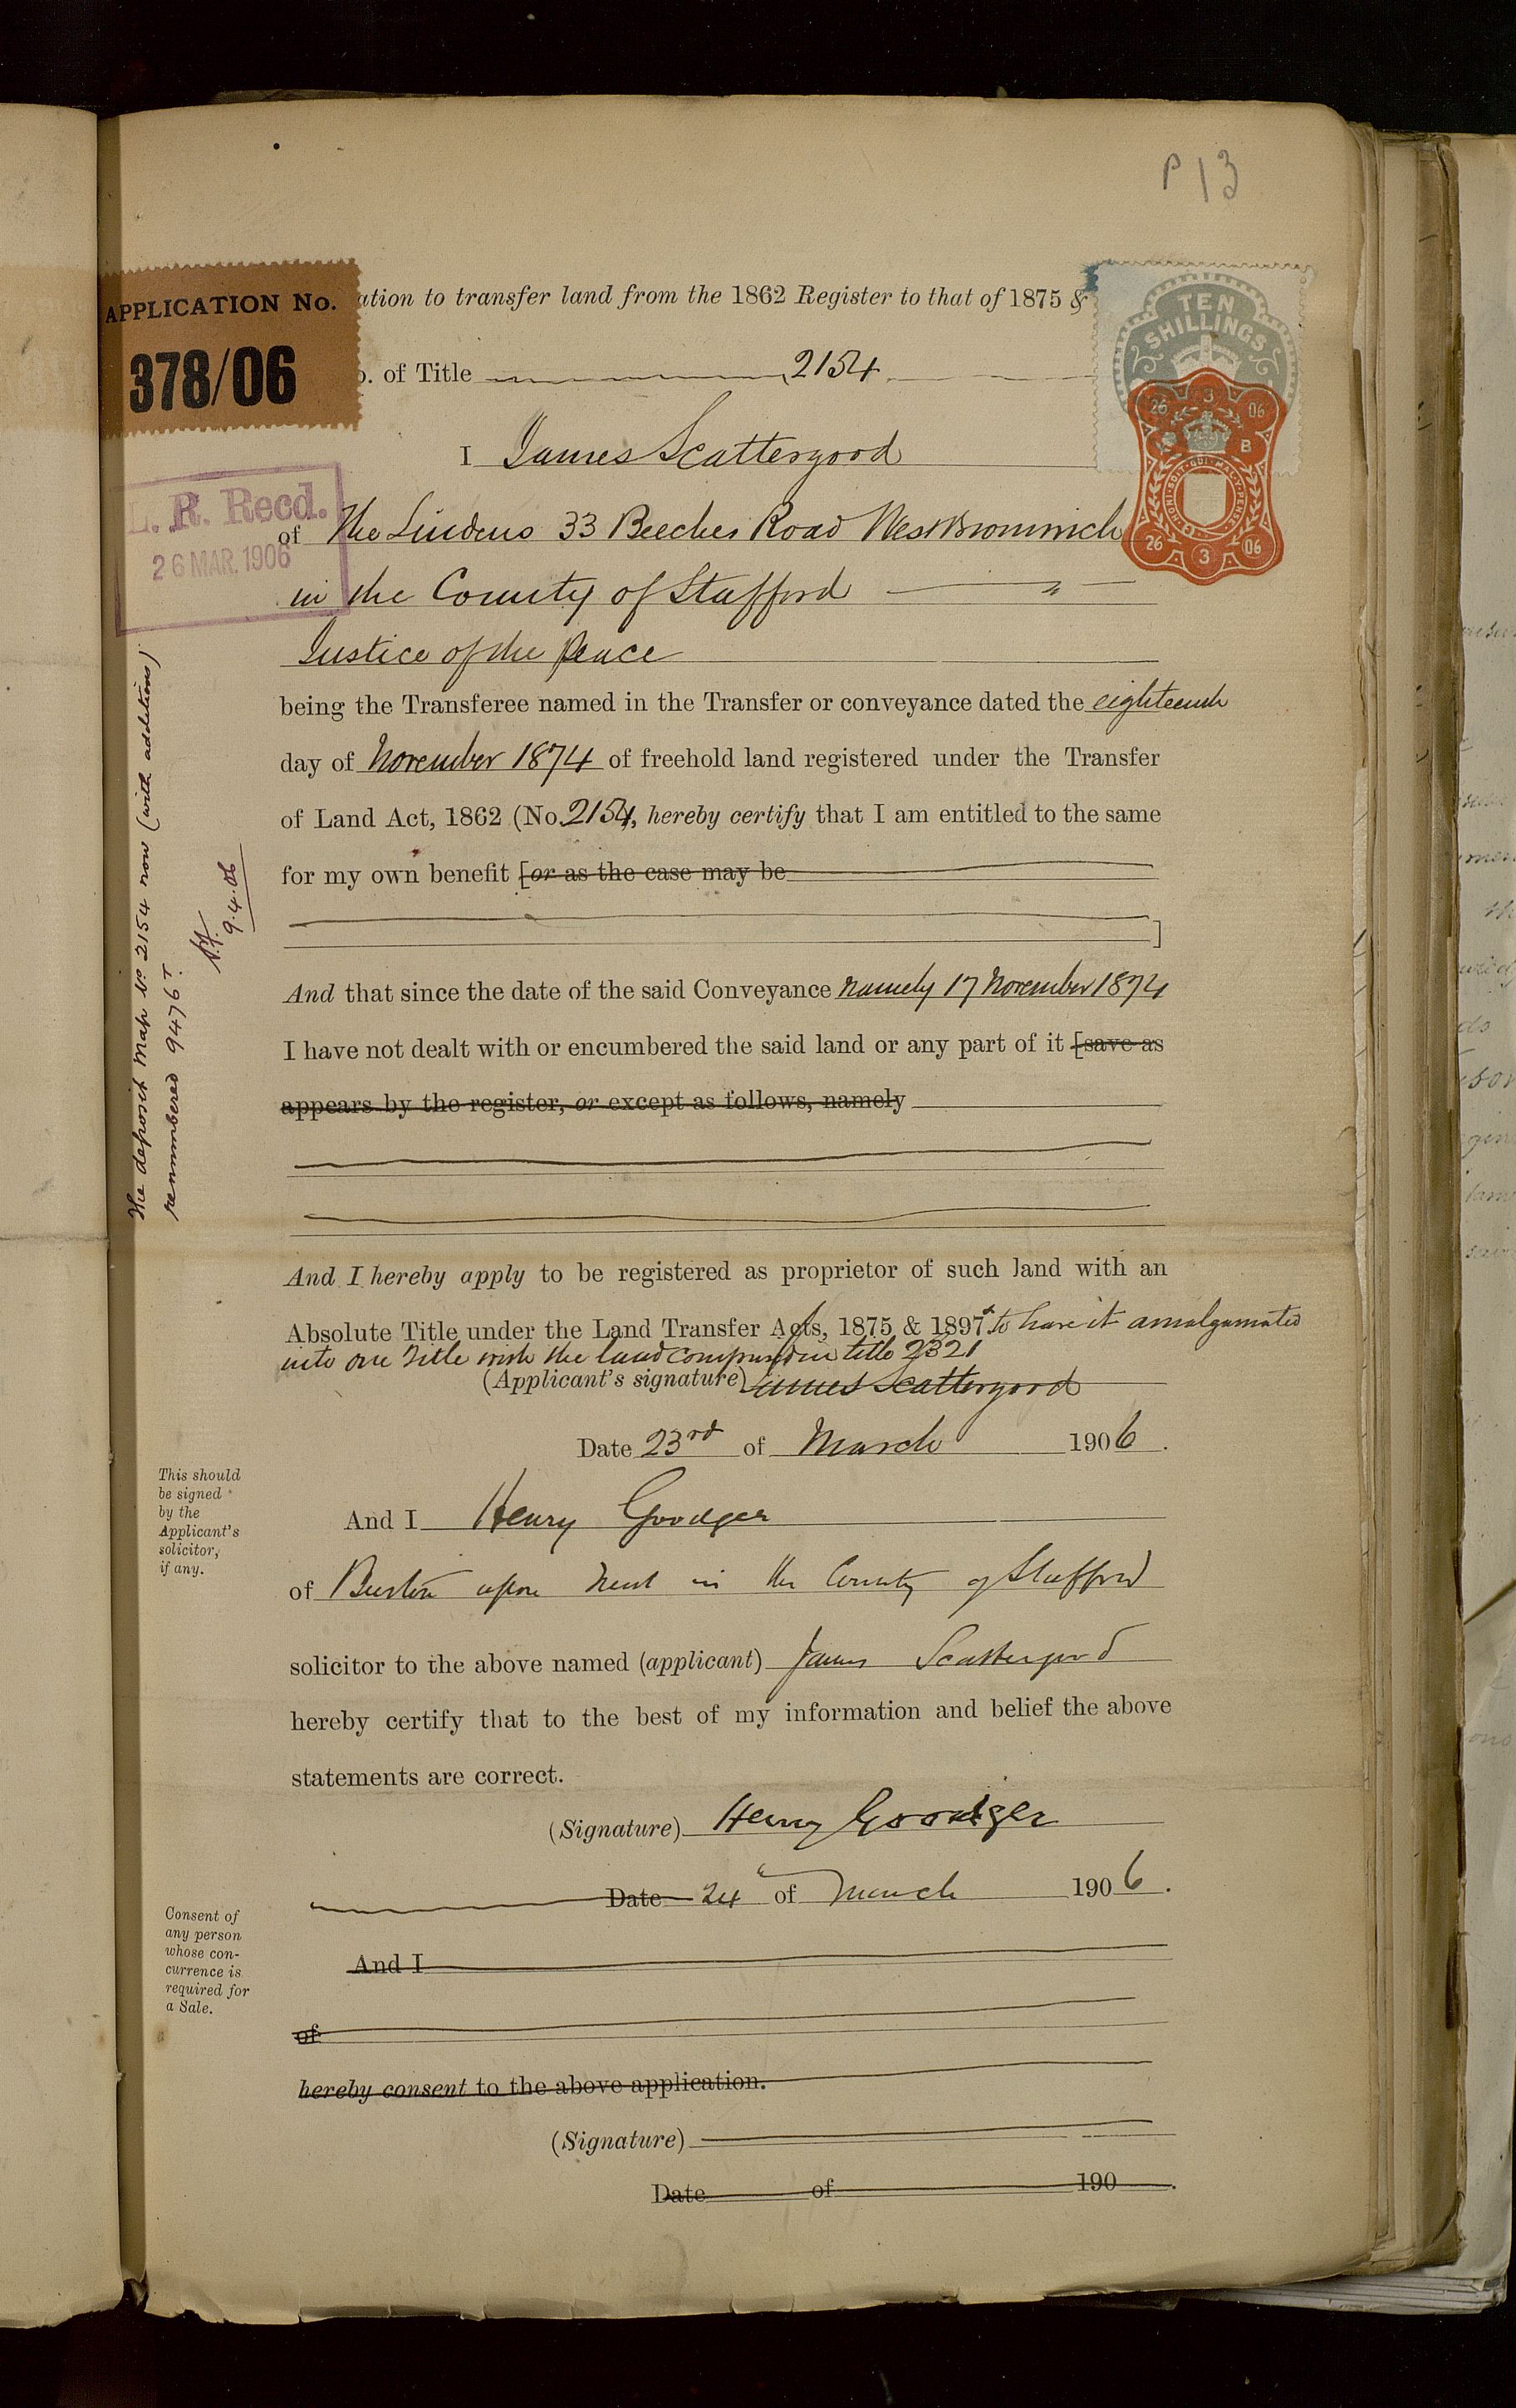 P 13
APPLICATION No.
378/06
ation to transfer land from the 1862 Register to that of 1875 &
o. of Title 2154
TEN
SHILLINGS
26 3 06
B
HONI · SOIT · QUI · MAL · Y · PENSE
26 3 06
I James Scattergood
L. R. Recd.
26 MAR. 1906
of The Lindens 33 Beeches Road West Bromwich
in the County of Stafford
Justice of the Peace
being the Transferee named in the Transfer or conveyance dated the eighteenth
day of November 1874 of freehold land registered under the Transfer
of Land Act, 1862 (No. 2154, hereby certify that I am entitled to the same
for my own benefit [or as the case may be
]
And that since the date of the said Conveyance namely 17 November 1874
I have not dealt with or encumbered the said land or any part of it [save as
appears by the register, or except as follows, namely
The deposit Map No 2154 now (with additions)
renumbered 9476 T.
9.4.06
And I hereby apply to be registered as proprietor of such land with an
Absolute Title under the Land Transfer Acts, 1875 & 1897 & to have it amalgamated
into one Title with the land comprised in title 2321
(Applicant's signature) James Scattergood
Date 23rd of March 1906.
This should
be signed
by the
Applicant's
solicitor,
if any.
And I Henry Goodger
of Burton upon Trent in the County of Stafford
solicitor to the above named (applicant) James Scattergood
hereby certify that to the best of my information and belief the above
statements are correct.
(Signature) Henry Goodger
Date 24 of March 1906.
Consent of
any person
whose con-
currence is
required for
a Sale.
And I
of
hereby consent to the above application.
(Signature)
Date of 190 .